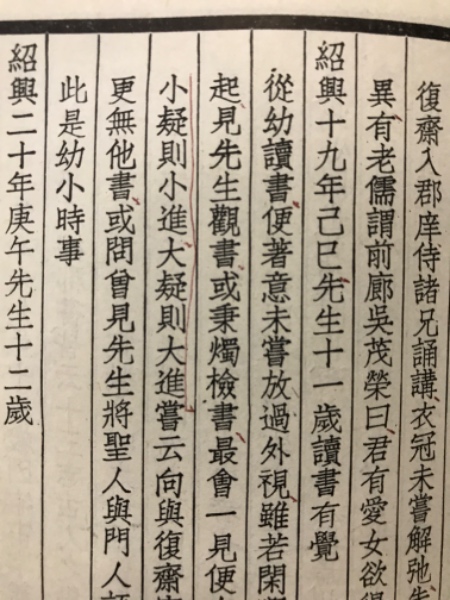 復齋入郡庠侍諸兄誦講衣冠未嘗解弛
異有老儒謂前廊吳茂榮曰君有愛女欲得
紹興十九年己巳先生十一歲讀書有覺
從幼讀書便著意未嘗放過外視雖若閑
起見先生觀書或秉燭檢書最會一見便
小疑則小進大疑則大進嘗云向與復齋
更無他書或問曾見先生將聖人與門人
此是幼小時事
紹興二十年庚午先生十二歲